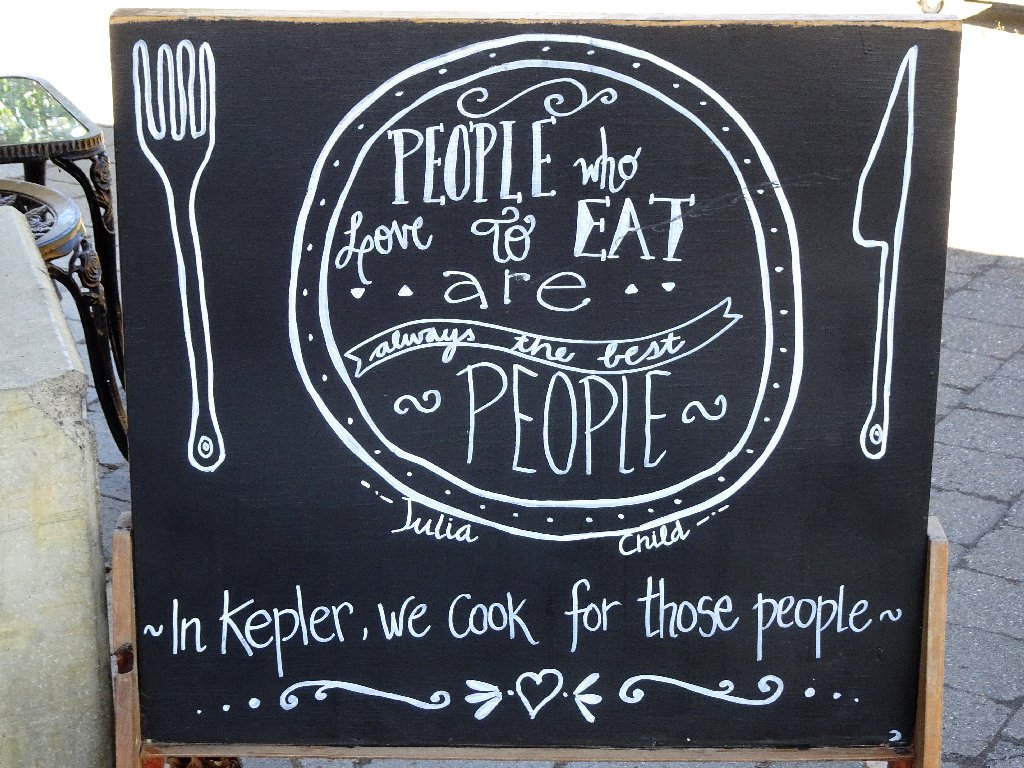 PEOPLE who
Love to EAT
are
always the best
PEOPLE
Julia Child
~In Kepler, we cook for those people~